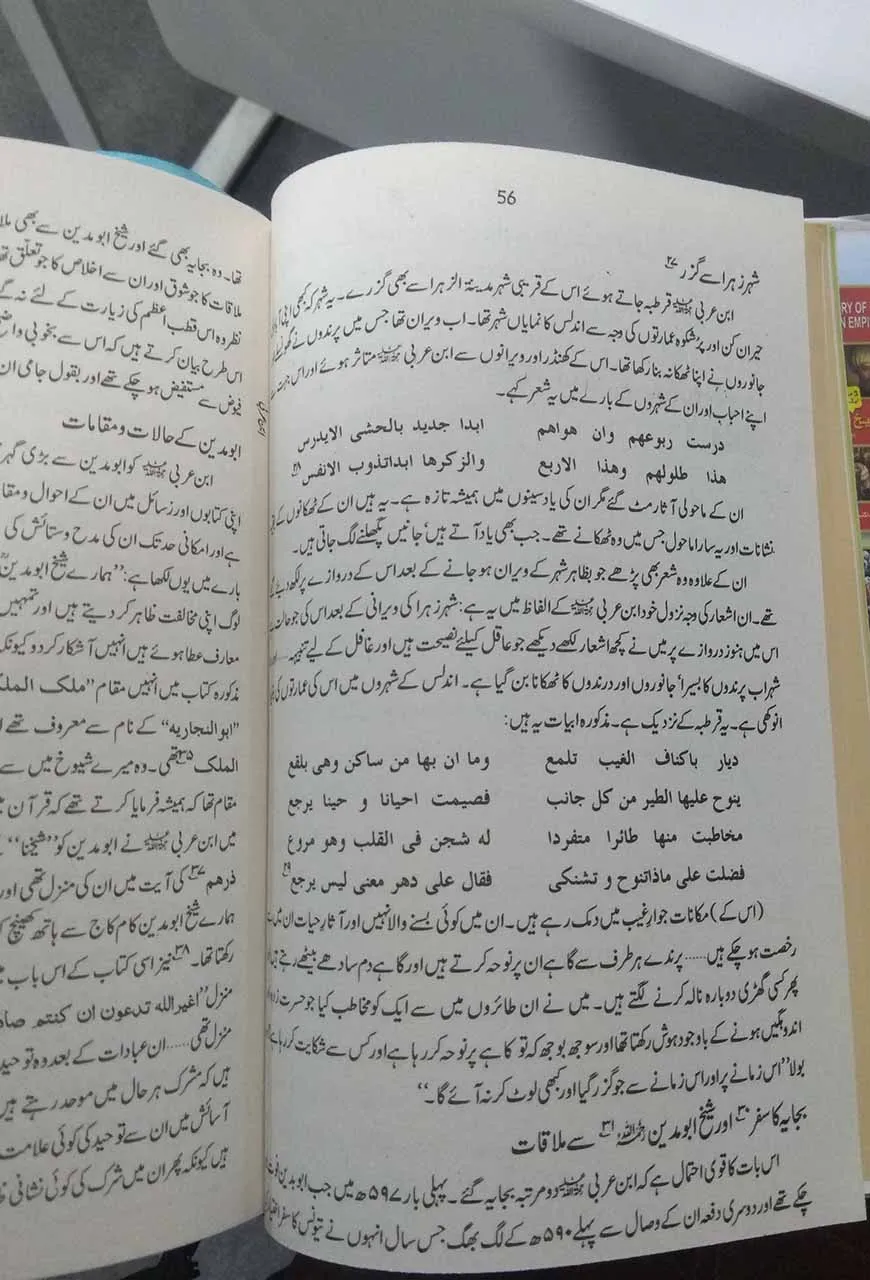 56
شہر زہرا سے گزر ۲۷
ابن عربی قرطبہ جاتے ہوئے اس کے قریبی شہر مدینۃ الزہرا سے بھی گزرے۔ یہ شہر کہ کبھی اپنی
حیران کن اور پرشکوہ عمارتوں کی وجہ سے اندلس کا نمایاں شہر تھا۔ اب ویران تھا جس میں پرندوں نے گھونسلے
جانوروں نے اپنا ٹھکانہ بنا رکھا تھا۔ اس کے کھنڈر اور ویرانوں سے ابن عربی متاثر ہوئے اور اس
اپنے احباب اور ان کے شہروں کے بارے میں یہ شعر کہے۔
درست ربوعهم وان هواهم ابدا جدید بالحشی الایدرس
هذا طلولهم وهذا الاربع والزکرها ابداتذوب الانفس ۲۸
ان کے ماحولی آثار مٹ گئے مگر ان کی یاد سینوں میں ہمیشہ تازہ ہے۔ یہ ہیں ان کے ٹھکانوں کے
نشانات اور یہ سارا ماحول جس میں وہ ٹھکانے تھے۔ جب بھی یاد آتے ہیں' جانیں پگھلنے لگ جاتی ہیں۔
ان کے علاوہ وہ شعر بھی پڑھے جو بظاہر شہر کے ویران ہو جانے کے بعد اس کے دروازے پر لکھ دیئے
تھے۔ ان اشعار کی وجہ نزول خود ابن عربی کے الفاظ میں یہ ہے: شہر زہرا کی ویرانی کے بعد اس کی جو حالت
اس میں ہنوز دروازے پر میں نے کچھ اشعار لکھے دیکھے جو عاقل کیلئے نصیحت ہیں اور غافل کے لیے تنبیہہ.....
شہر اب پرندوں کا بسیرا' جانوروں اور درندوں کا ٹھکانا بن گیا ہے۔ اندلس کے شہروں میں اس کی عمارتوں کی
انوکھی ہے۔ یہ قرطبہ کے نزدیک ہے۔ مذکورہ ابیات یہ ہیں:
دیار باکناف الغیب تلمع وما ان بها من ساکن وهی بلقع
ینوح علیها الطیر من کل جانب فصیمت احیانا و حینا یرجع
مخاطبت منها طائرا متفردا له شجن فی القلب وهو مروع
فضلت علی ماذاتنوح و تشنکی فقال علی دهر معنی لیس یرجع ۲۹
(اس کے) مکانات جوار غیب میں دمک رہے ہیں۔ ان میں کوئی بسنے والا نہیں اور آثار حیات ان میں سے
رخصت ہو چکے ہیں..... پرندے ہر طرف سے گاہے ان پر نوحہ کرتے ہیں اور گاہے دم سادھے بیٹھے رہتے
پھر کسی گھڑی دوبارہ نالہ کرنے لگتے ہیں۔ میں نے ان طائروں میں سے ایک کو مخاطب کیا جو حسرت
اندوہگیں ہونے کے باوجود ہوش رکھتا تھا اور سوجھ بوجھ کہ تو کاہے پر نوحہ کر رہا ہے اور کس سے شکایت کر رہا
بولا "اس زمانے پر اور اس زمانے سے جو گزر گیا اور کبھی لوٹ کر نہ آئے گا۔"
بجایہ کا سفر ۳۰ اور شیخ ابو مدین ۳۱ سے ملاقات
اس بات کا قوی احتمال ہے کہ ابن عربی دو مرتبہ بجایہ گئے۔ پہلی بار ۵۹۷ھ میں جب ابو مدین فوت
چکے تھے اور دوسری دفعہ ان کے وصال سے پہلے ۵۹۰ھ کے لگ بھگ جس سال انہوں نے تیونس کا سفر
تھا۔ وہ بجایہ بھی گئے اور شیخ ابو مدین سے بھی
ملاقات کا جو شوق اور ان سے اخلاص کا جو تعلق
نظر وہ اس قطب اعظم کی زیارت کے لئے نہ
اس طرح بیان کرتے ہیں کہ اس سے بخوبی
فیوض سے مستفیض ہو چکے تھے اور بقول جامی
ابو مدین کے حالات و مقامات
ابن عربی کو ابو مدین سے بڑی
اپنی کتابوں اور رسائل میں ان کے احوال و
ہے اور امکانی حد تک ان کی مدح و ستائش کی
بارے میں یوں لکھا ہے: "ہمارے شیخ ابو مدین
لوگ اپنی مخالفت ظاہر کر دیتے ہیں اور تمہیں
معارف عطا ہوئے ہیں انہیں آشکار کر دو کیونکہ
مذکورہ کتاب میں انہیں مقام "ملک
"ابوالنجاریہ" کے نام سے معروف تھے
الملک ۳۵ تھی۔ وہ میرے شیوخ میں سے
مقام تھا کہ ہمیشہ فرمایا کرتے تھے کہ قرآن
میں ابن عربی نے ابو مدین کو "شیخنا"
ذرهم ۳۷ کی آیت میں ان کی منزل تھی اور
ہمارے شیخ ابو مدین کام کاج سے ہاتھ کھینچ
رکھتا تھا۔ ۳۸ نیز اسی کتاب کے اس باب
منزل "اغیر الله تدعون ان کنتم
منزل تھی..... ان عبادات کے بعد وہ توحید
ہیں کہ مشرک ہر حال میں موحد رہتے ہیں
آسائش میں ان سے توحید کی کوئی علامت
ہیں کیونکہ پھر ان میں شرک کی کوئی نشانی
RY OF
N EMPI